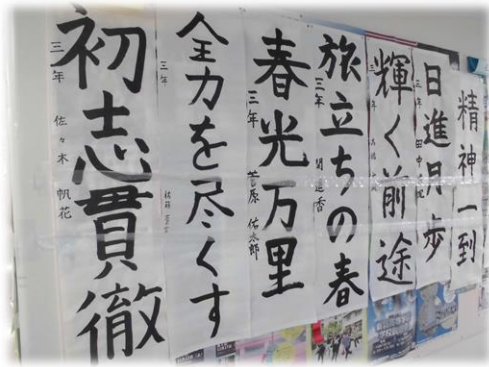 精神一到
日進月歩
三年 田中
輝く前途
三年
旅立ちの春
三年 関 遥香
春光万里
三年 菅原 佑太郎
全力を尽くす
三年
初志貫徹
三年 佐々木 帆花